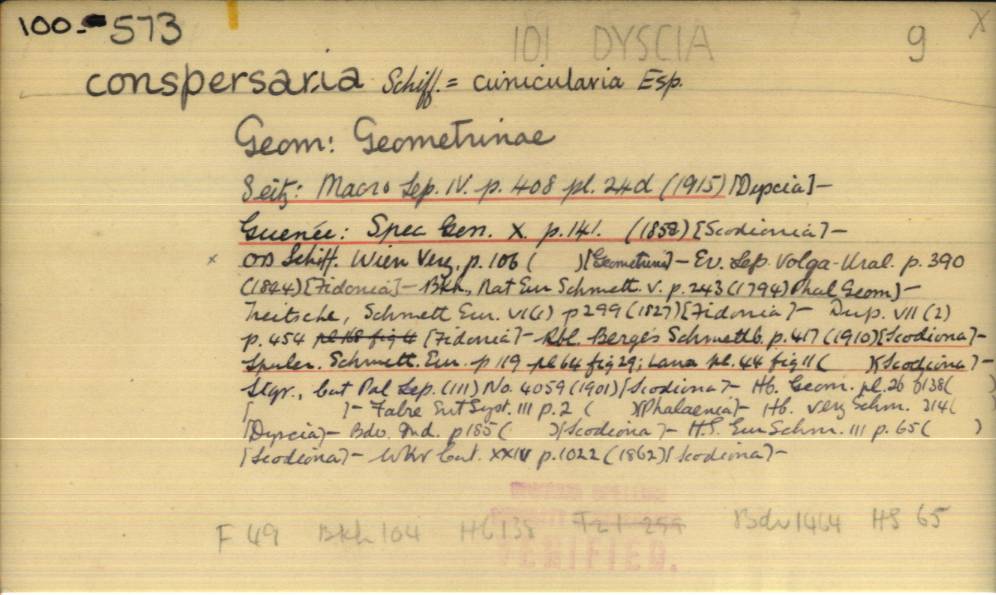 100-573 101 DYSCIA 9 X
conspersaria Schiff. = cunicularia Esp.
Geom: Geometrinae
Seitz: Macro Lep. IV. p. 408 pl. 24d (1915) [Dyscia]-
Guenée: Spec Gen. X. p. 141. (1858) [Scodionia]-
x OD Schiff. Wien Verz. p. 106 ( ) [Geometrina]- Ev. Lep. Volga-Ural. p. 390
(1844) [Fidonia]- Bkh. Nat Eur Schmett. V. p. 243 (1794) Phal Geom]-
Treitsche, Schmett Eur. VI(1) p 299 (1827) [Fidonia]- Dup. VII (2)
p. 454 pl. 168 fig 4 [Fidonia]- Rbl. Berge's Schmettb. p. 417 (1910) [Scodiona]-
Spuler. Schmett. Eur. p 119 pl 64 fig 29; Larva pl. 44 fig 11 ( )[Scodiona]-
Stgr., Cat Pal Lep. (III) No. 4059 (1901) [Scodiona]- Hb. Geom. pl. 26 f 138 ( )
[ ]- Fabre Ent Syst. III p. 2 ( )(Phalaenia]- Hb. Verz Schm. 314 (
[Dyscia]- Bdv. Ind. p 185 ( )[Scodiona]- H.S. Eur Schm. III p. 65 ( )
[Scodiona]- Wkr Cat. XXIV p. 1022 (1862) [Scodiona]-
VERIFIED.
F 49 Bkh 104 Hb 138 299 Bdv 1464 HS 65